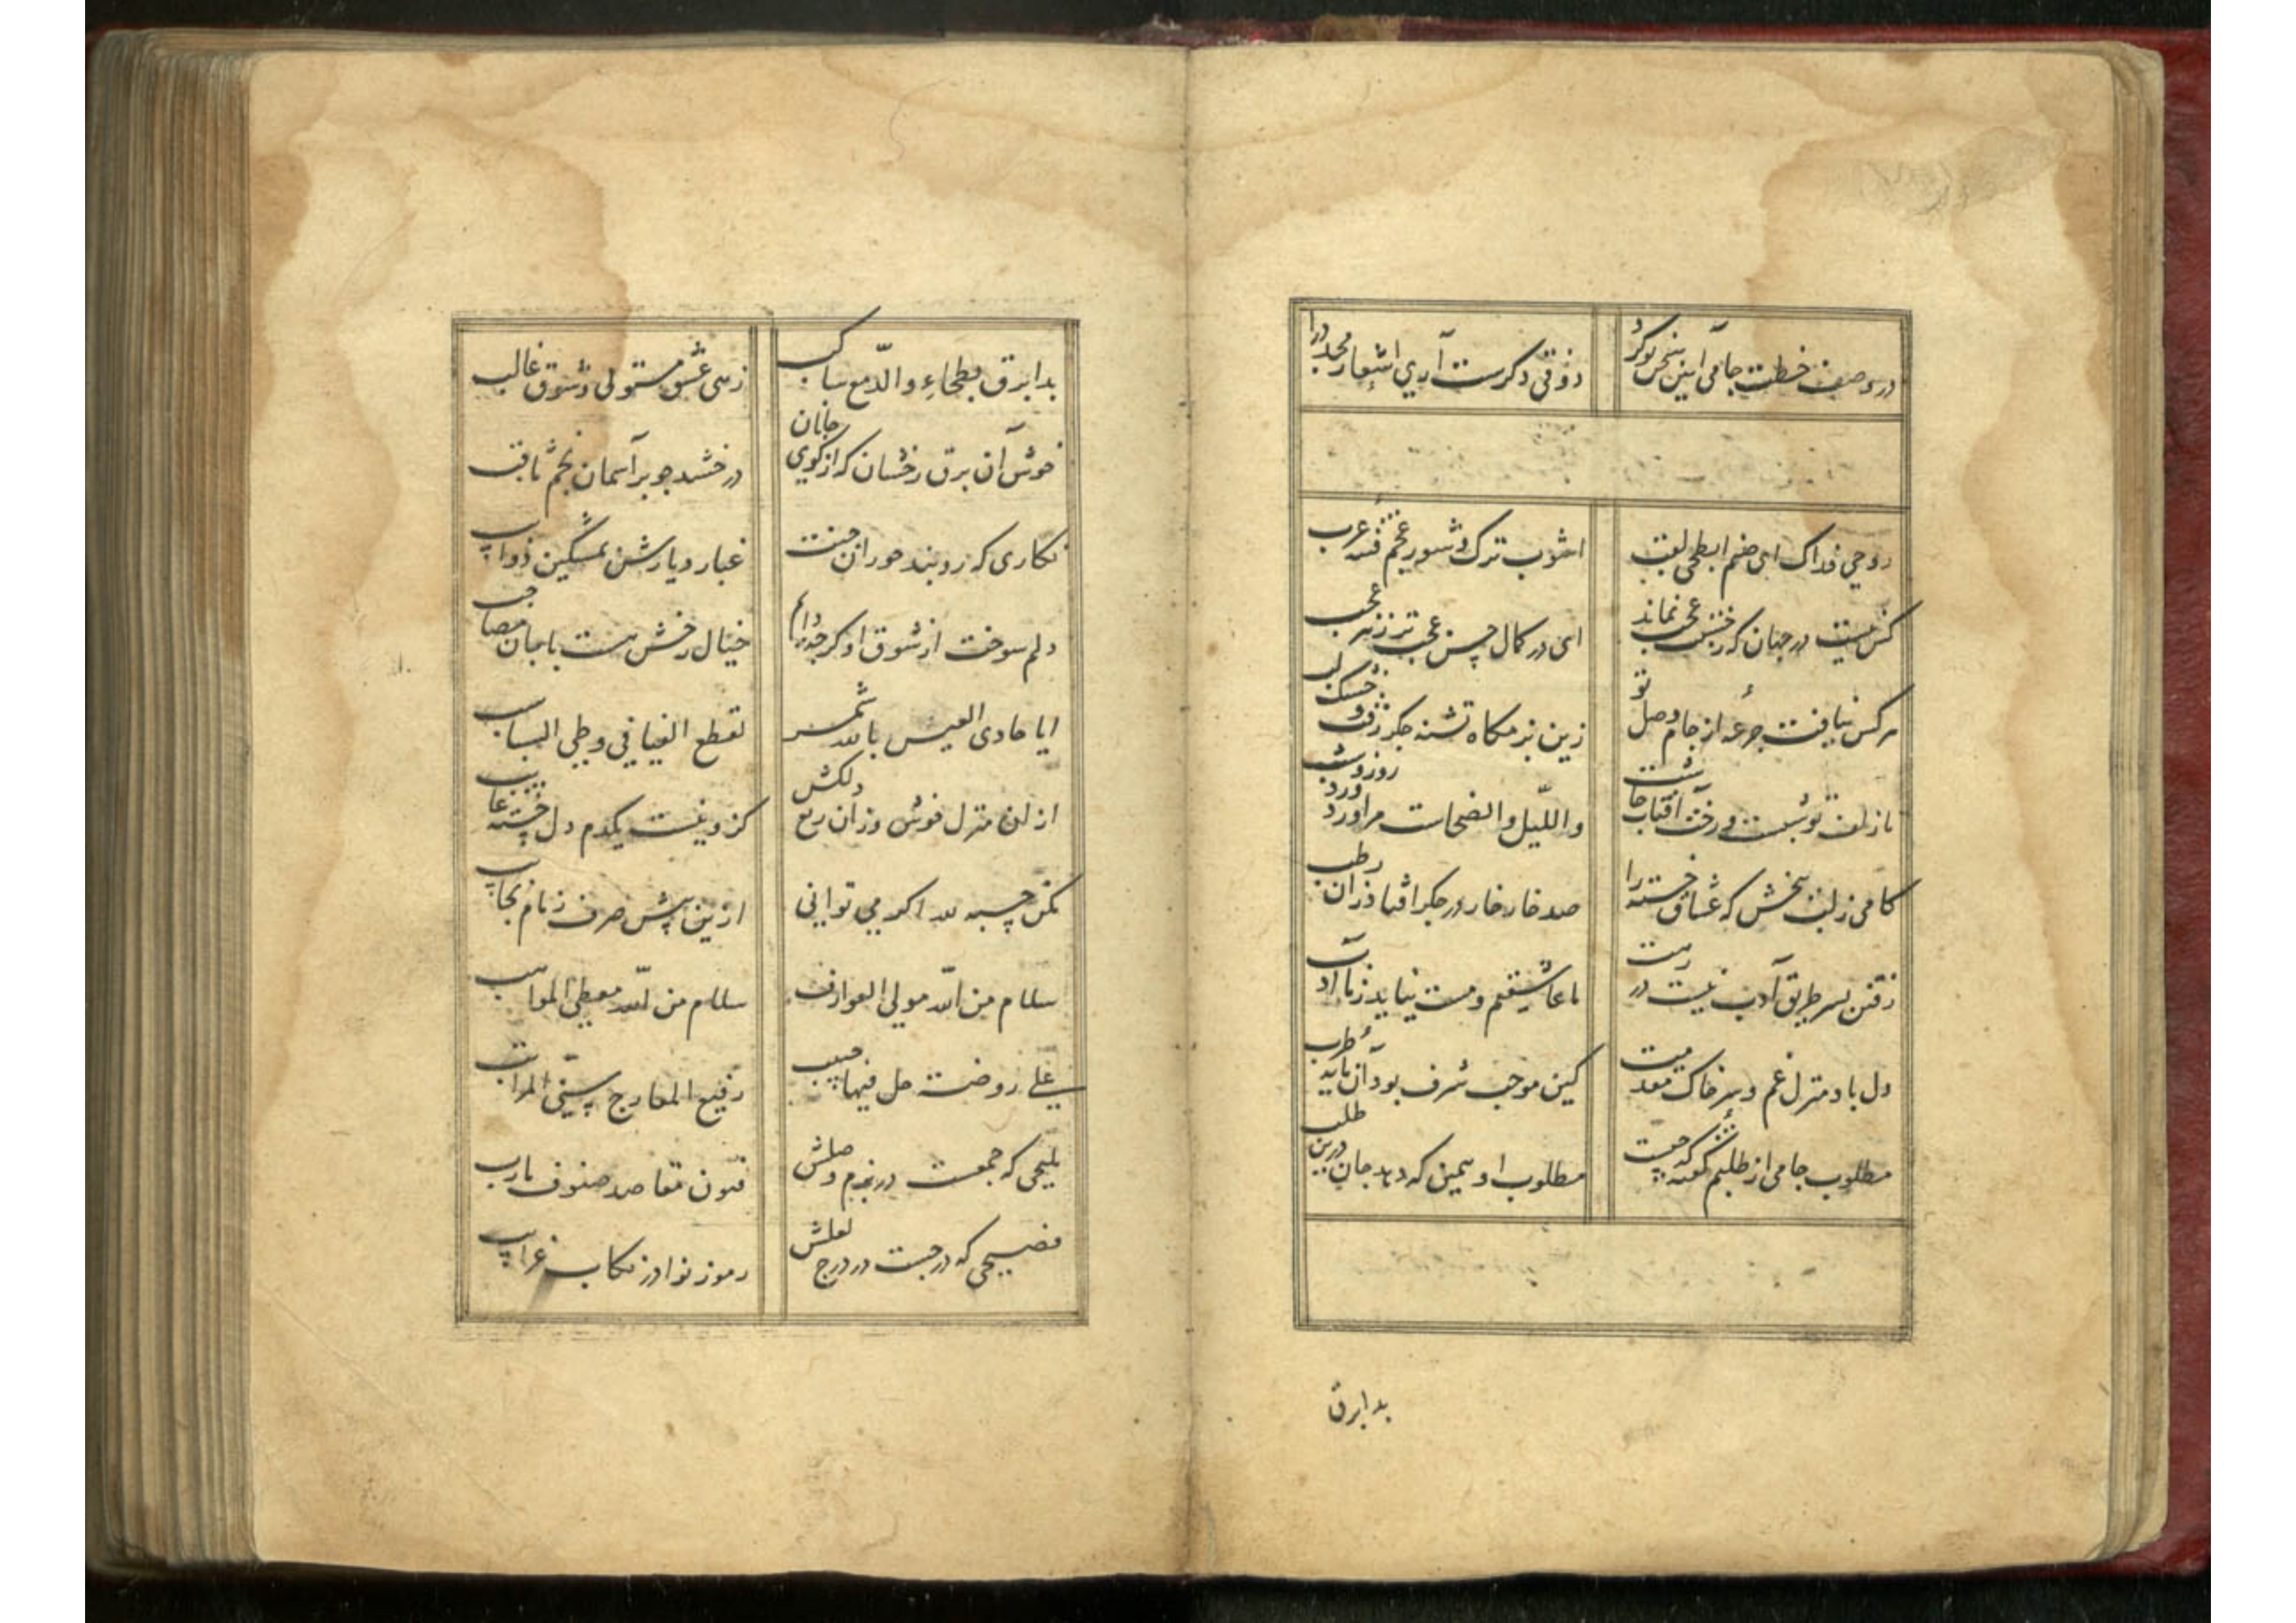 در وصف خطت جامی این سخن نو کرد
ذوقی دگرست آری اشعار مجدد را
روحی فداک ای صنم ابطحی لقب
اشوب ترک و شور عجم فتنه عرب
کس نیست در جهان که ز حسنت عجب نماند
ای در کمال حسن عجب تر ز هر عجب
هر کس نیافت جرعه از جام وصل تو
زین بزمگاه تشنه جگر رفت و خشک لب
تا زلف تو شبست و رخت آفتاب چاشت
واللیل والضحاست مرا ورد روز و شب
کامی ز لب ببخش که عشاق خسته را
صد خار خار در جگر افتاد زان رطب
رفتن بسر طریق آدب نیست در رهت
ما عاشقیم و مست نیاید ز ما ادب
دل باد منزل غم و سر خاک مقدمت
کین موجب شرف بود آن مایه طرب
مطلوب جامی از طلبم گفته که چیست
مطلوب او همین که دهد جان درین طلب
بدا برق
بدا برق بطحاء والدمع ساکب
زهی عشق مستولی و شوق غالب
خوش آن برق رخشان که از کوی جانان
درخشد چو بر آسمان نجم ثاقب
نکاری که روبند حوران جنت
غبار دیارش بمشگین ذوایب
دلم سوخت از شوق او کر چه دایم
خیال رخش هست با جان مصاحب
ایا حادی العیس بالله شمر
لقطع الفیافی وطی السباسب
از ان منزل خوش وزان ربع دلکش
کزو نیست یکدم دل خسته غایب
مکن حسبه لله اکر می توانی
ازین بیش صرف زمام نجایب
سلام من الله مولی العوارف
سلام من الله معطی المواهب
علی روضت حل فیها حبیب
رفیع المعارج سنی المراتب
ملیحی که جمعست در بزم وصلش
فنون مقاصد صنوف مارب
فصیحی که درجست در درج لعلش
رموز نوادر نکات غرایب